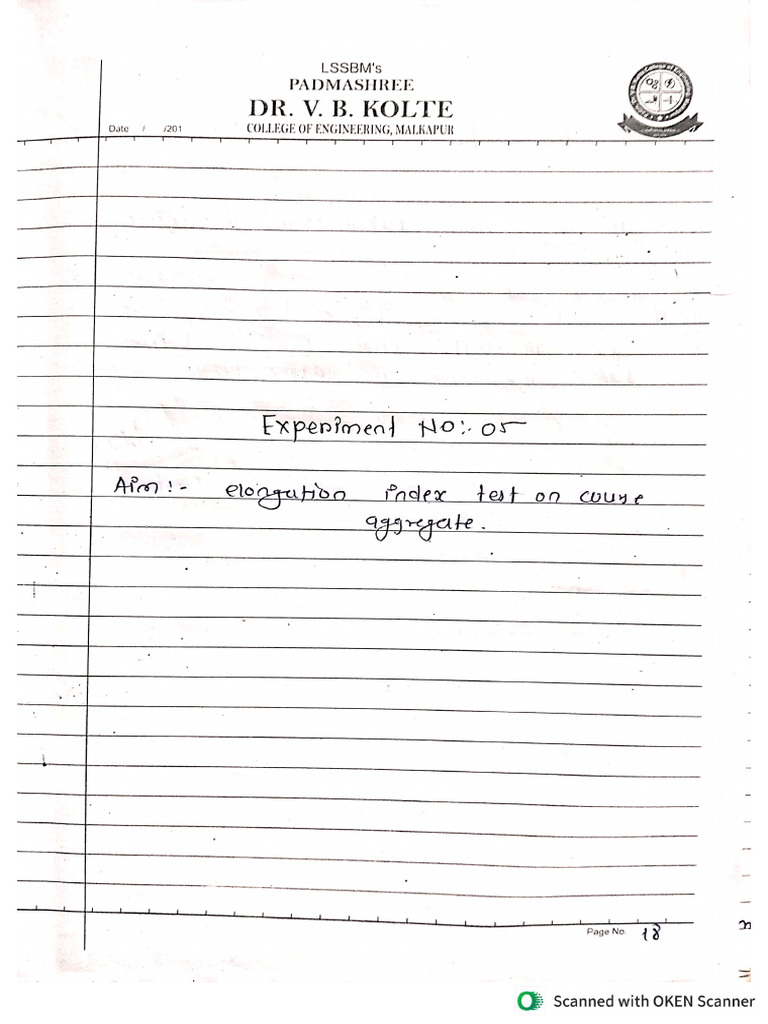 LSSBM's
PADMASHREE
DR. V. B. KOLTE
Date / /201
COLLEGE OF ENGINEERING, MALKAPUR
Experiment NO:- 05
Aim :- elongation index test on course
aggregate.
Page No. 18
Scanned with OKEN Scanner